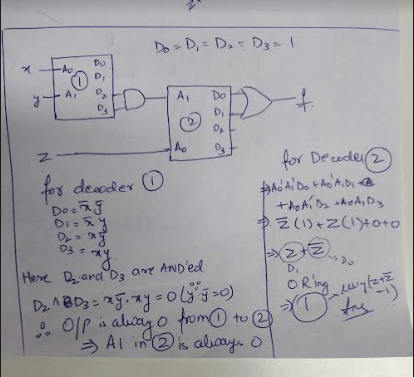 D₀ = D₁ = D₂ = D₃ = 1
x A₀ ① D₀
D₁
y A₁ D₂
D₃
A₁ D₀ f
② D₁
D₂
Z A₀ D₃
for decoder ①
D₀ = x̄ȳ
D₁ = x̄y
D₂ = xȳ
D₃ = xy
Here D₂ and D₃ are ANDed
D₂ ∧ D₃ = xȳ · xy = 0 (∵ y·ȳ = 0)
∴ O/P is always 0 from ① to ②
⇒ A1 in ② is always 0
for Decoder ②
⇒ A₀'A₁'D₀ + A₀'A₁D₁ +
+ A₀A₁'D₂ + A₀A₁D₃
⇒ Z̄(1) + Z(1) + 0 + 0
⇒ Z + Z̄ → D₀
D₁
ORing
⇒ 1 → using (z + z̄ = 1)
Ans